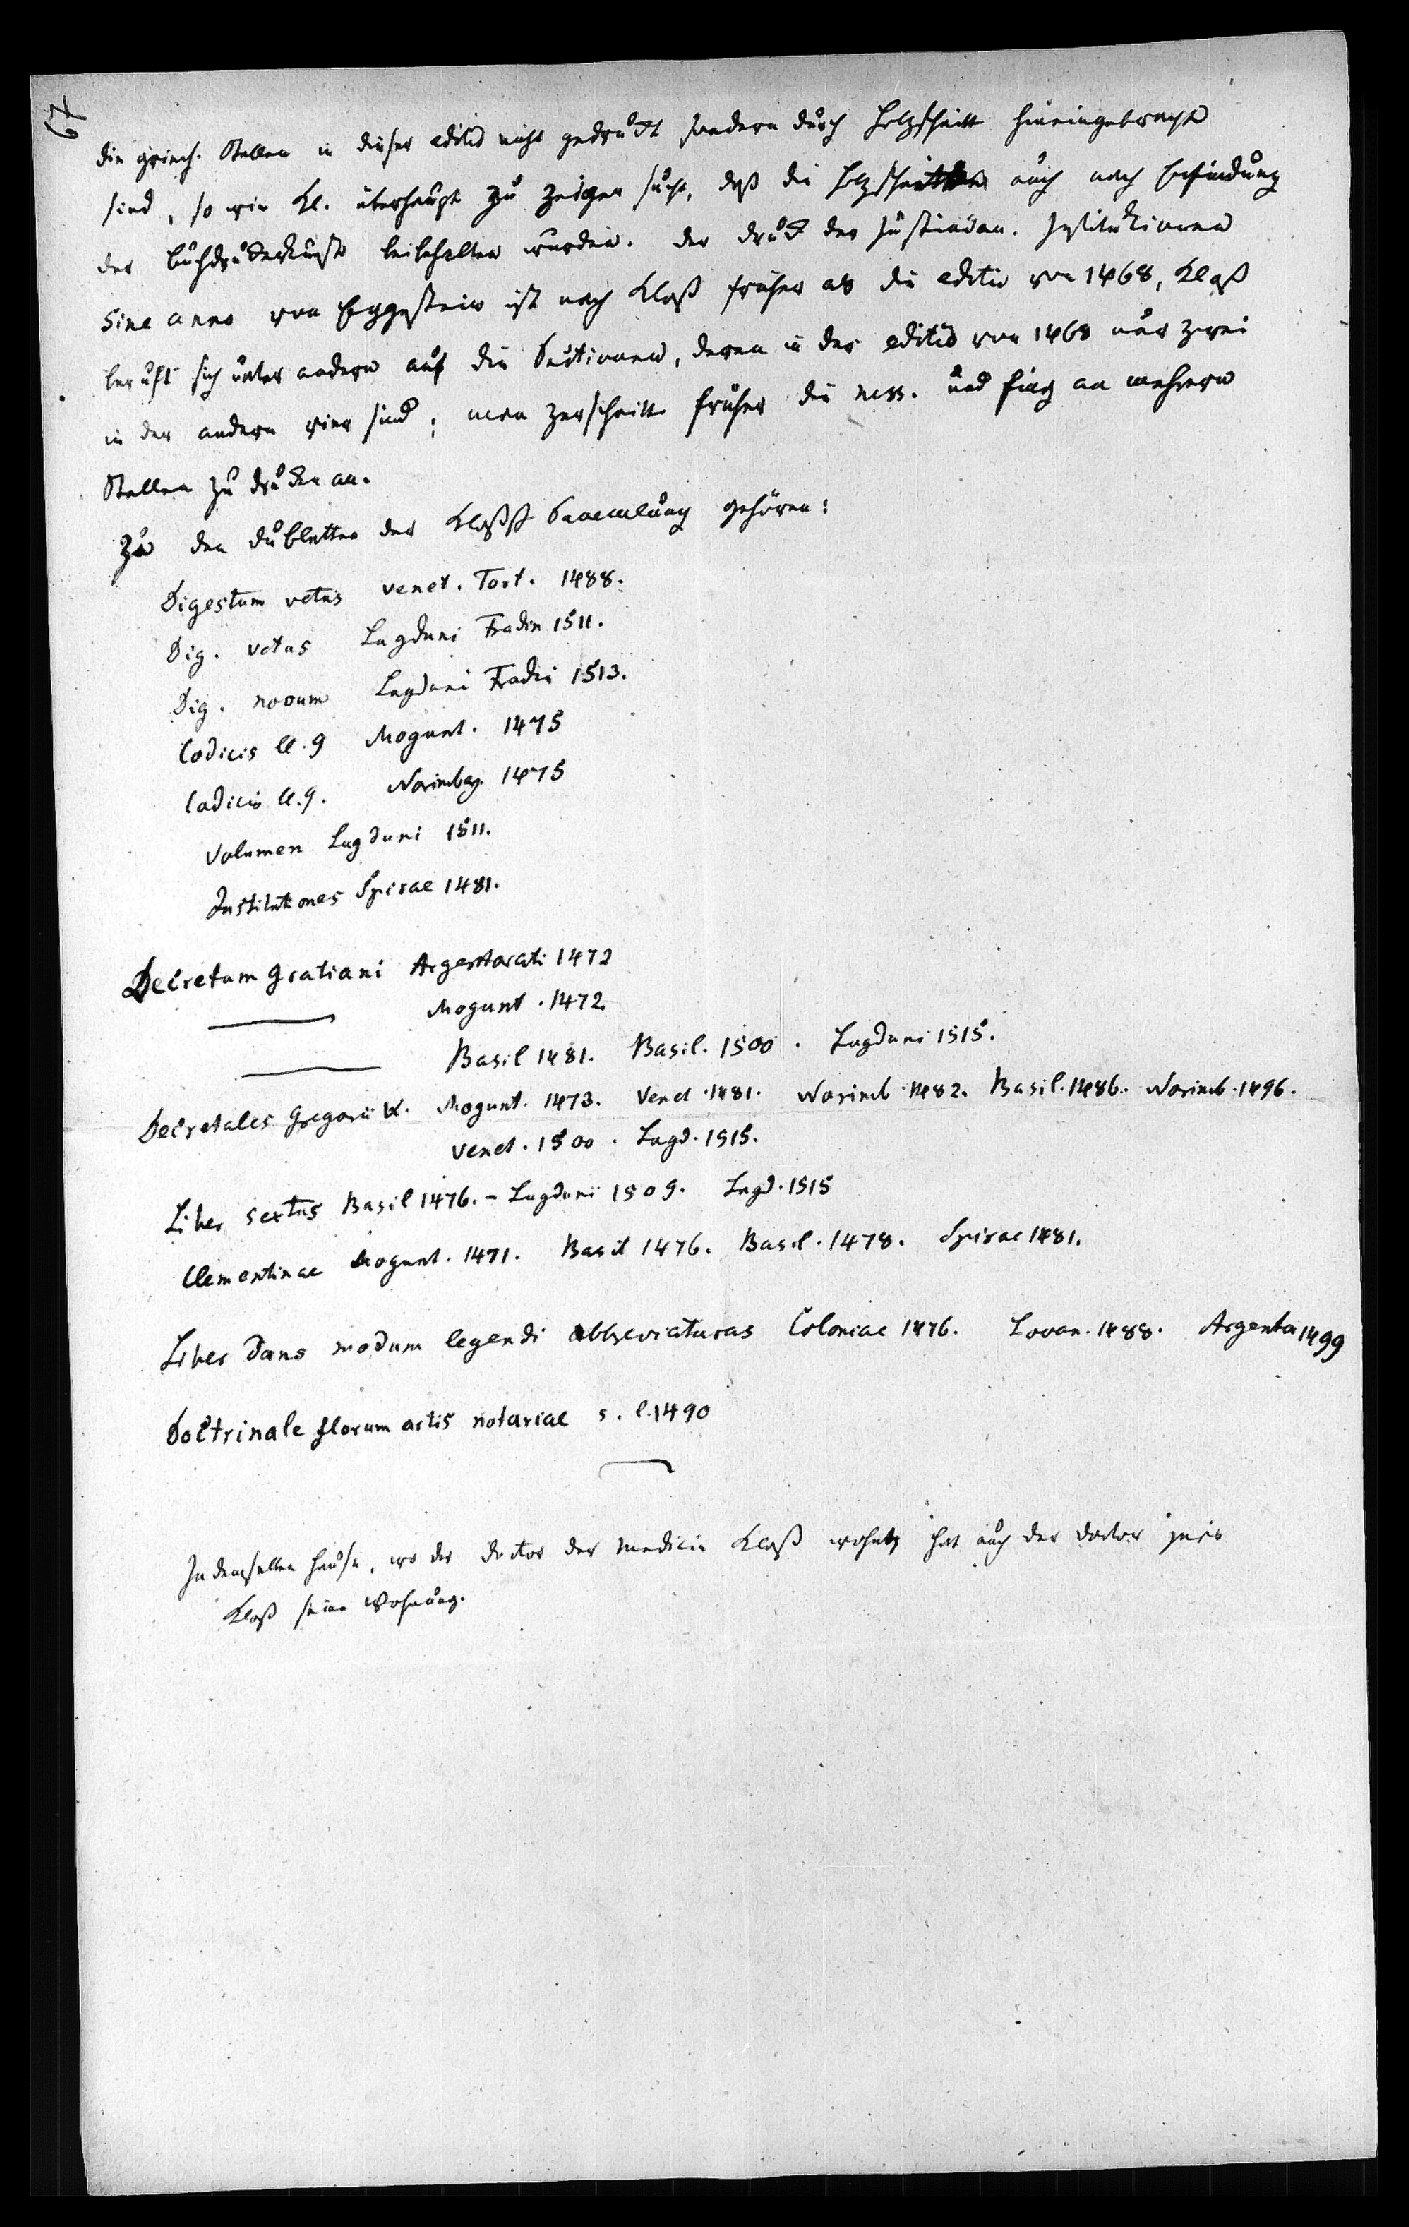 67
die griech. Stellen in dieser editio nicht gedruckt sondern durch Holzschnitt hineingebracht
sind, so wie Kl. überhaupt zu zeigen sucht, daß die Holzschnitte auch nach Erfindung
der Buchdruckerkunst beibehalten wurden. Der Druck der Justinian. Institutionen
sine anno von Eggestein ist nach Kloß früher als die editio von 1468, Kloß
beruft sich unter andern auf die Sectionen, deren in der editio von 1468 nur zwei
in der andern vier sind; man zerschnitt früher die mss. und fing an mehrern
Stellen zu drucken an.
Zu den Dubletten der Kloßs Sammlung gehören:
Digestum vetus venet. Tort. 1488.
Dig. vetus Lugduni Fradin 1511.
Dig. novum Lugduni Fradin 1513.
Codicis ll. 9 Mogunt. 1475
Codicis ll. 9. Norimbg. 1475
Volumen Lugduni 1511.
Institutiones Spirae 1481.
Decretum Gratiani Argentorati 1472
Mogunt. 1472
Basil 1481. Basil. 1500. Lugduni 1515.
Decretales Gregorii IX. Mogunt. 1473. Venet. 1481. Norimb. 1482. Basil. 1486. Norimb. 1496.
Venet. 1500. Lugd. 1515.
Liber sextus Basil 1476. - Lugduni 1509. Lugd. 1515
Clementinae Mogunt. 1471. Basil 1476. Basil. 1478. Spirae 1481.
Liber dans modum legendi abbreviaturas Coloniae 1476. Lovan. 1488. Argentor 1499
Doctrinale florum artis notariae s. l. 1490
In demselben Hause, wo der Doctor der Medicin Kloß wohnt, hat auch der Doctor juris
Kloß seine Wohnung.